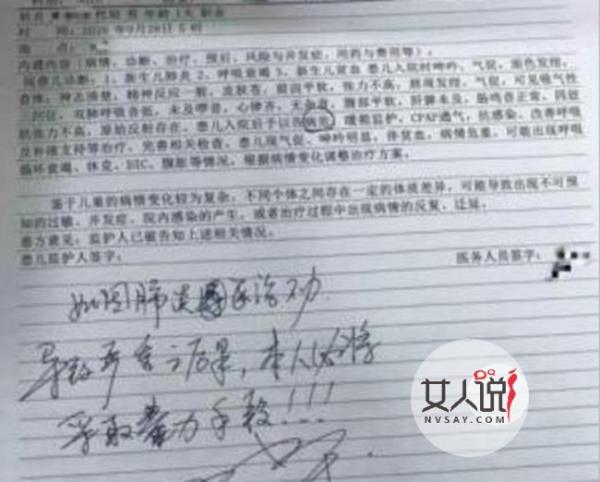 时间：2016年9月28日5时
地点：
内谈内容（病情、诊断、治疗、预后、风险与并发症、用药与费用等）：
诊断：1、新生儿肺炎 2、呼吸衰竭 3、新生儿贫血 患儿入院时呻吟，气促，面色发绀，
查体：神志清楚，精神反应一般，皮肤苍，前囟平软，张力不高，唇颊发绀，气促，可见吸气性
凹征，双肺呼吸音低，未及啰音，心律齐，无杂音，腹部平软，肝脾未及，肠鸣音正常，四肢
肌张力不高，原始反射存在。患儿入院后予以告病危，暖箱监护，CPAP通气，抗感染、改善呼吸
及补液支持等治疗，完善相关检查，患儿现气促、呻吟明显，伴贫血，病情危重，可能出现呼吸
循环衰竭、休克、DIC、腹胀等情况，根据病情变化调整治疗方案。
鉴于儿童的病情变化较为复杂，不同个体之间存在一定的体质差异，可能导致出现不可预
知的过敏、并发症、院内感染的产生，或者治疗过程中出现病情的反复、迁延。
患方意见：监护人已被告知上述相关情况。
患儿监护人签字：
医务人员签字：
如因肺炎医治不力
导致严重之后果，本人必将
采取暴力手段！！！
女人说
NVSAY.COM